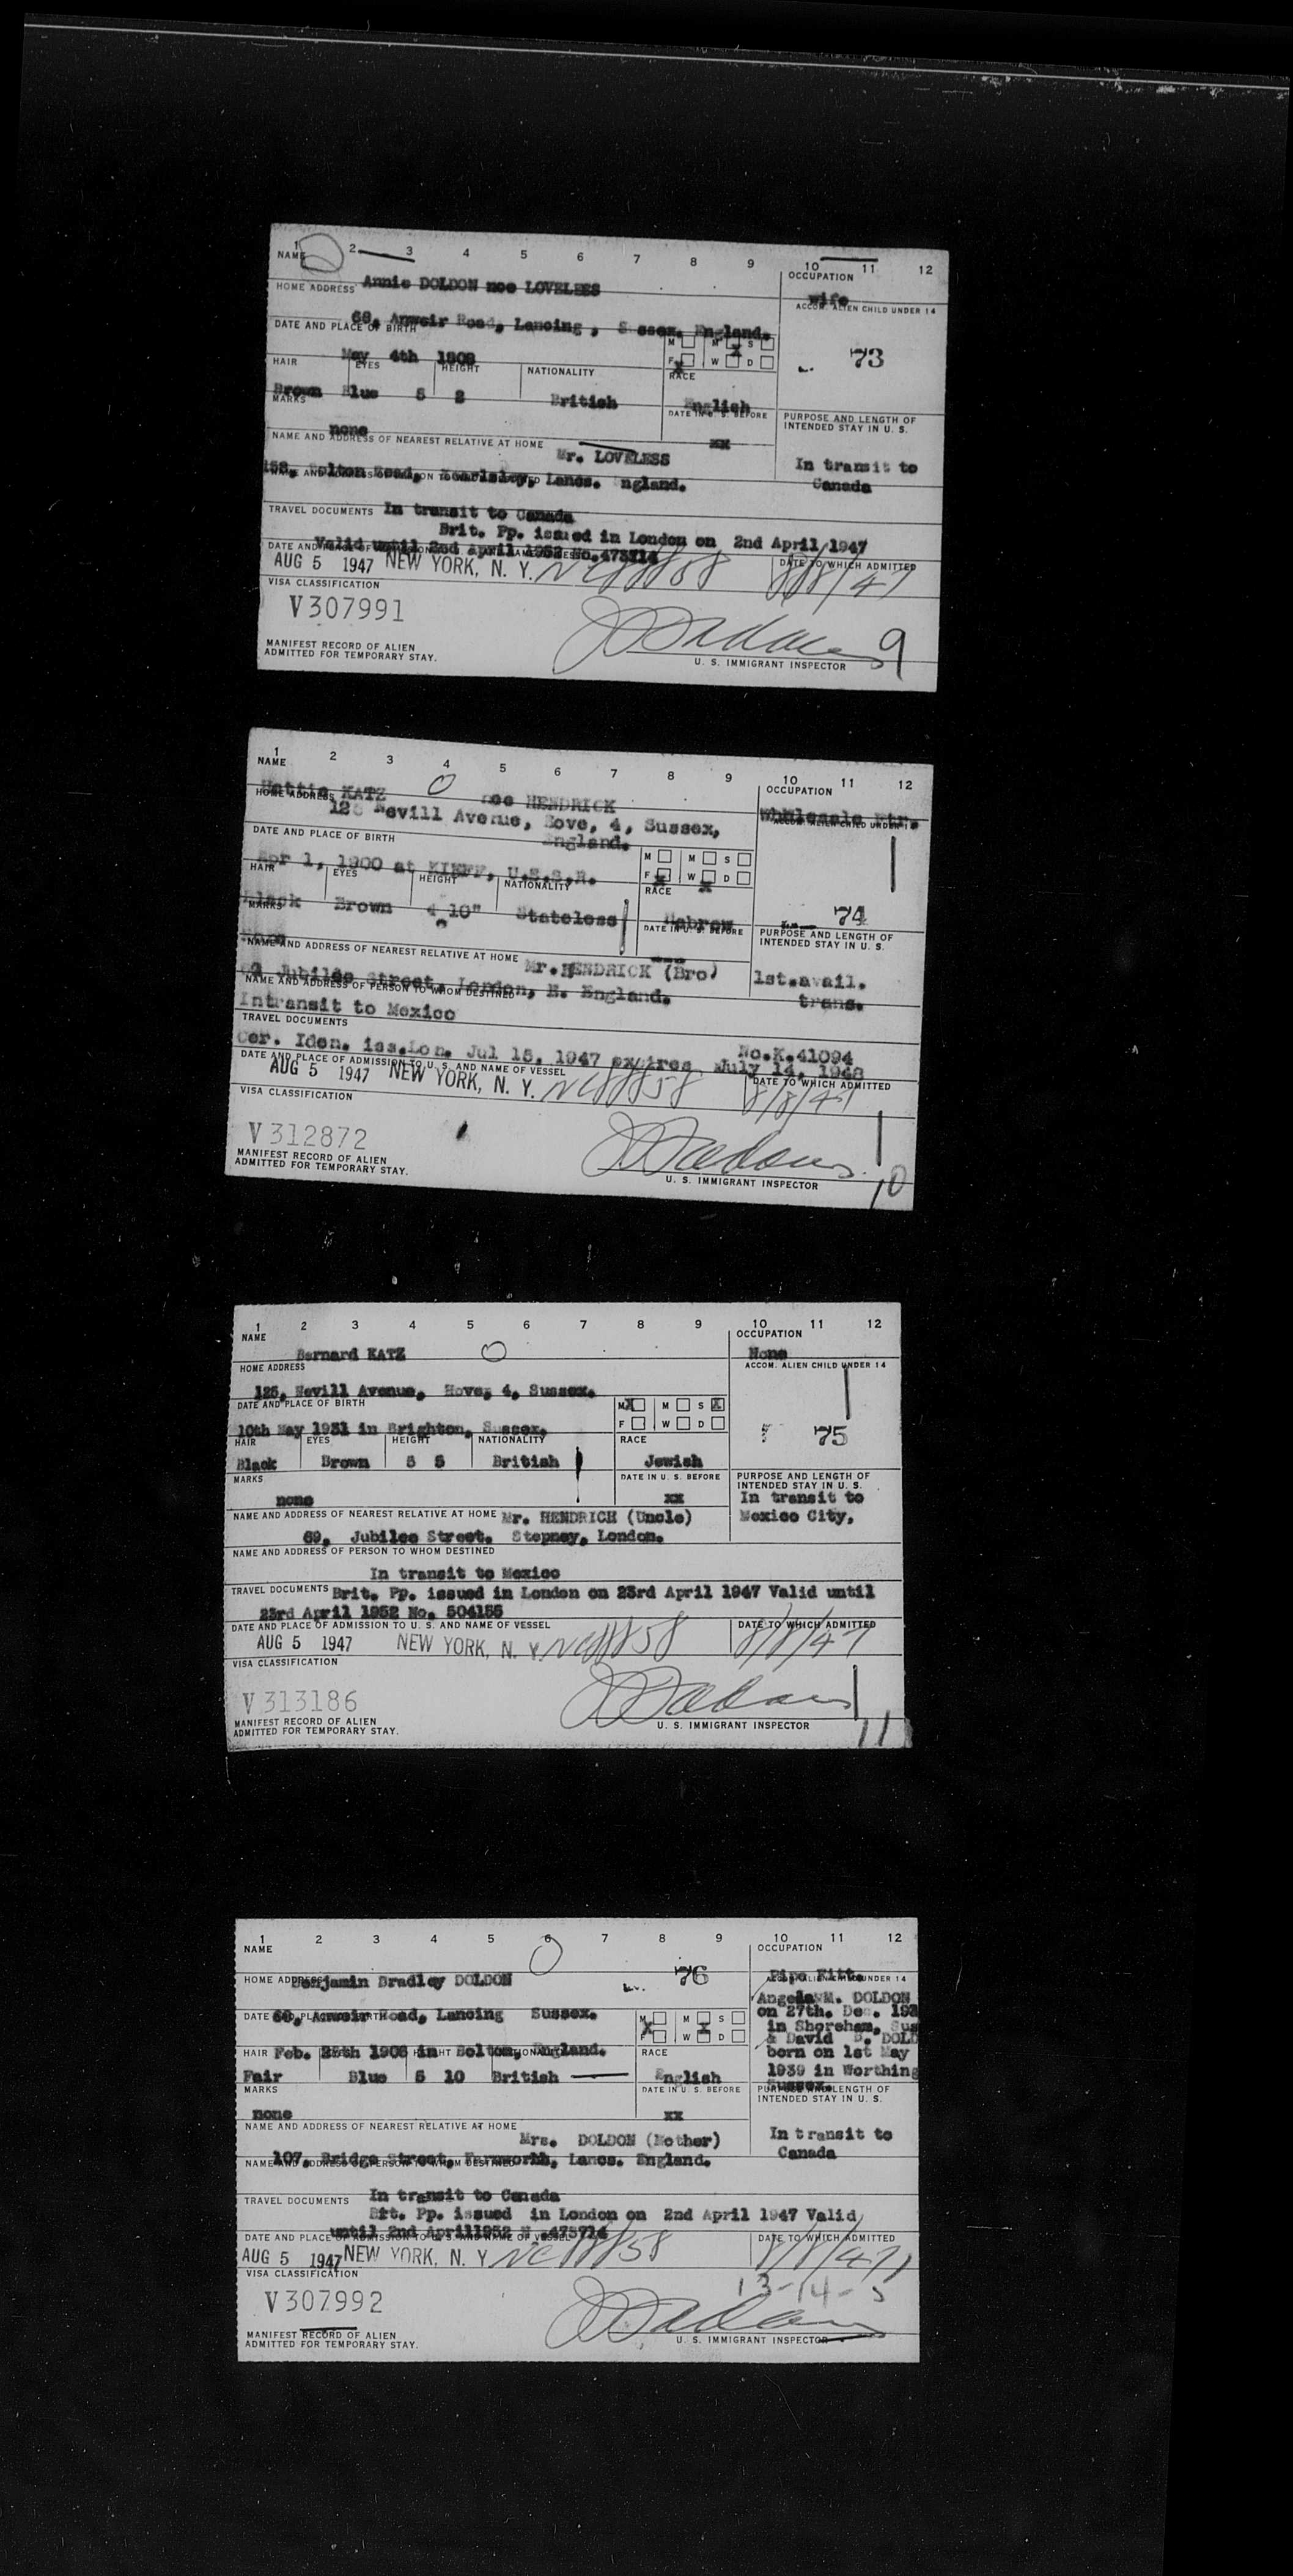 1 2 3 4 5 6 7 8 9 10 11 12
NAME OCCUPATION
Annie DOLDON nee LOVELESS wife
HOME ADDRESS ACCOM. ALIEN CHILD UNDER 14
Road, Lancing, Sussex. England.
DATE AND PLACE OF BIRTH M M S
May 4th F W D 73
HAIR EYES HEIGHT NATIONALITY RACE
Brown Blue 5 2 British English
MARKS DATE IN U. S. BEFORE PURPOSE AND LENGTH OF
INTENDED STAY IN U. S.
none xx
NAME AND ADDRESS OF NEAREST RELATIVE AT HOME
Mr. LOVELESS In transit to
Road, Kearlsley, Lancs. ngland. Canada
TRAVEL DOCUMENTS In transit to Canada
Brit. Pp. issued in London on 2nd April 1947
Valid until 2nd April 1952 No.473714
DATE TO WHICH ADMITTED
AUG 5 1947 NEW YORK, N. Y. NC88858 8/8/47
VISA CLASSIFICATION
V307991
MANIFEST RECORD OF ALIEN
ADMITTED FOR TEMPORARY STAY.
U. S. IMMIGRANT INSPECTOR 9
1 2 3 4 5 6 7 8 9 10 11 12
NAME OCCUPATION
Hettie KATZ nee HENDRICK Wholesale
HOME ADDRESS
Nevill Avenue, Hove, 4, Sussex,
England.
DATE AND PLACE OF BIRTH M M S
Apr 1, 1900 at KIEFF, U.S.S.R. F W D
HAIR EYES HEIGHT NATIONALITY RACE
Black Brown 4 10" Stateless Hebrew 74
MARKS DATE IN U. S. BEFORE PURPOSE AND LENGTH OF
INTENDED STAY IN U. S.
NAME AND ADDRESS OF NEAREST RELATIVE AT HOME Mr. HENDRICK (Bro) 1st.avail.
Jubilee Street, London, E. England. trans.
NAME AND ADDRESS OF PERSON TO WHOM DESTINED
Intransit to Mexico
TRAVEL DOCUMENTS
No.K.41094
Cer. Iden. iss.Lon. Jul 15, 1947 expires July 14, 1948
DATE AND PLACE OF ADMISSION TO U. S. AND NAME OF VESSEL DATE TO WHICH ADMITTED
AUG 5 1947 NEW YORK, N. Y. NC88858 8/8/47
VISA CLASSIFICATION
V312872
MANIFEST RECORD OF ALIEN
ADMITTED FOR TEMPORARY STAY.
U. S. IMMIGRANT INSPECTOR 10
1 2 3 4 5 6 7 8 9 10 11 12
NAME OCCUPATION
Bernard KATZ None
HOME ADDRESS ACCOM. ALIEN CHILD UNDER 14
125, Nevill Avenue, Hove, 4, Sussex.
DATE AND PLACE OF BIRTH M X M S X
10th May 1931 in Brighton, Sussex. F W D 75
HAIR EYES HEIGHT NATIONALITY RACE
Black Brown 5 5 British Jewish
MARKS DATE IN U. S. BEFORE PURPOSE AND LENGTH OF
INTENDED STAY IN U. S.
none xx In transit to
NAME AND ADDRESS OF NEAREST RELATIVE AT HOME Mr. HENDRICH (Uncle) Mexico City,
69, Jubilee Street, Stepney, London.
NAME AND ADDRESS OF PERSON TO WHOM DESTINED
In transit to Mexico
TRAVEL DOCUMENTS Brit. Pp. issued in London on 23rd April 1947 Valid until
23rd April 1952 No. 504155
DATE AND PLACE OF ADMISSION TO U. S. AND NAME OF VESSEL DATE TO WHICH ADMITTED
AUG 5 1947 NEW YORK, N. Y. NC88858 8/8/47
VISA CLASSIFICATION
V313186
MANIFEST RECORD OF ALIEN
ADMITTED FOR TEMPORARY STAY.
U. S. IMMIGRANT INSPECTOR 11
1 2 3 4 5 6 7 8 9 10 11 12
NAME OCCUPATION
HOME ADDRESS Benjamin Bradley DOLDON 76 Pipe Fitt.
Angela M. DOLDON
Road, Lancing Sussex. M M S on 27th. Dec. 193
in Shoreham, Sus
F W D & David B. DOLD
HAIR Feb. 25th 1906 in Bolton, England. RACE born on 1st May
Fair Blue 5 10 British English 1939 in Worthing
MARKS DATE IN U. S. BEFORE Sussex.
INTENDED STAY IN U. S.
none xx
NAME AND ADDRESS OF NEAREST RELATIVE AT HOME
Mrs. DOLDON (Mother) In transit to
107, Bridge Street, Farnworth, Lancs. England. Canada
TRAVEL DOCUMENTS In transit to Canada
Brt. Pp. issued in London on 2nd April 1947 Valid
until 2nd April1952 N .473714
DATE TO WHICH ADMITTED
AUG 5 1947 NEW YORK, N. Y NC88858 8/8/47
VISA CLASSIFICATION 13-14-
V307992
MANIFEST RECORD OF ALIEN
ADMITTED FOR TEMPORARY STAY.
U. S. IMMIGRANT INSPECTOR